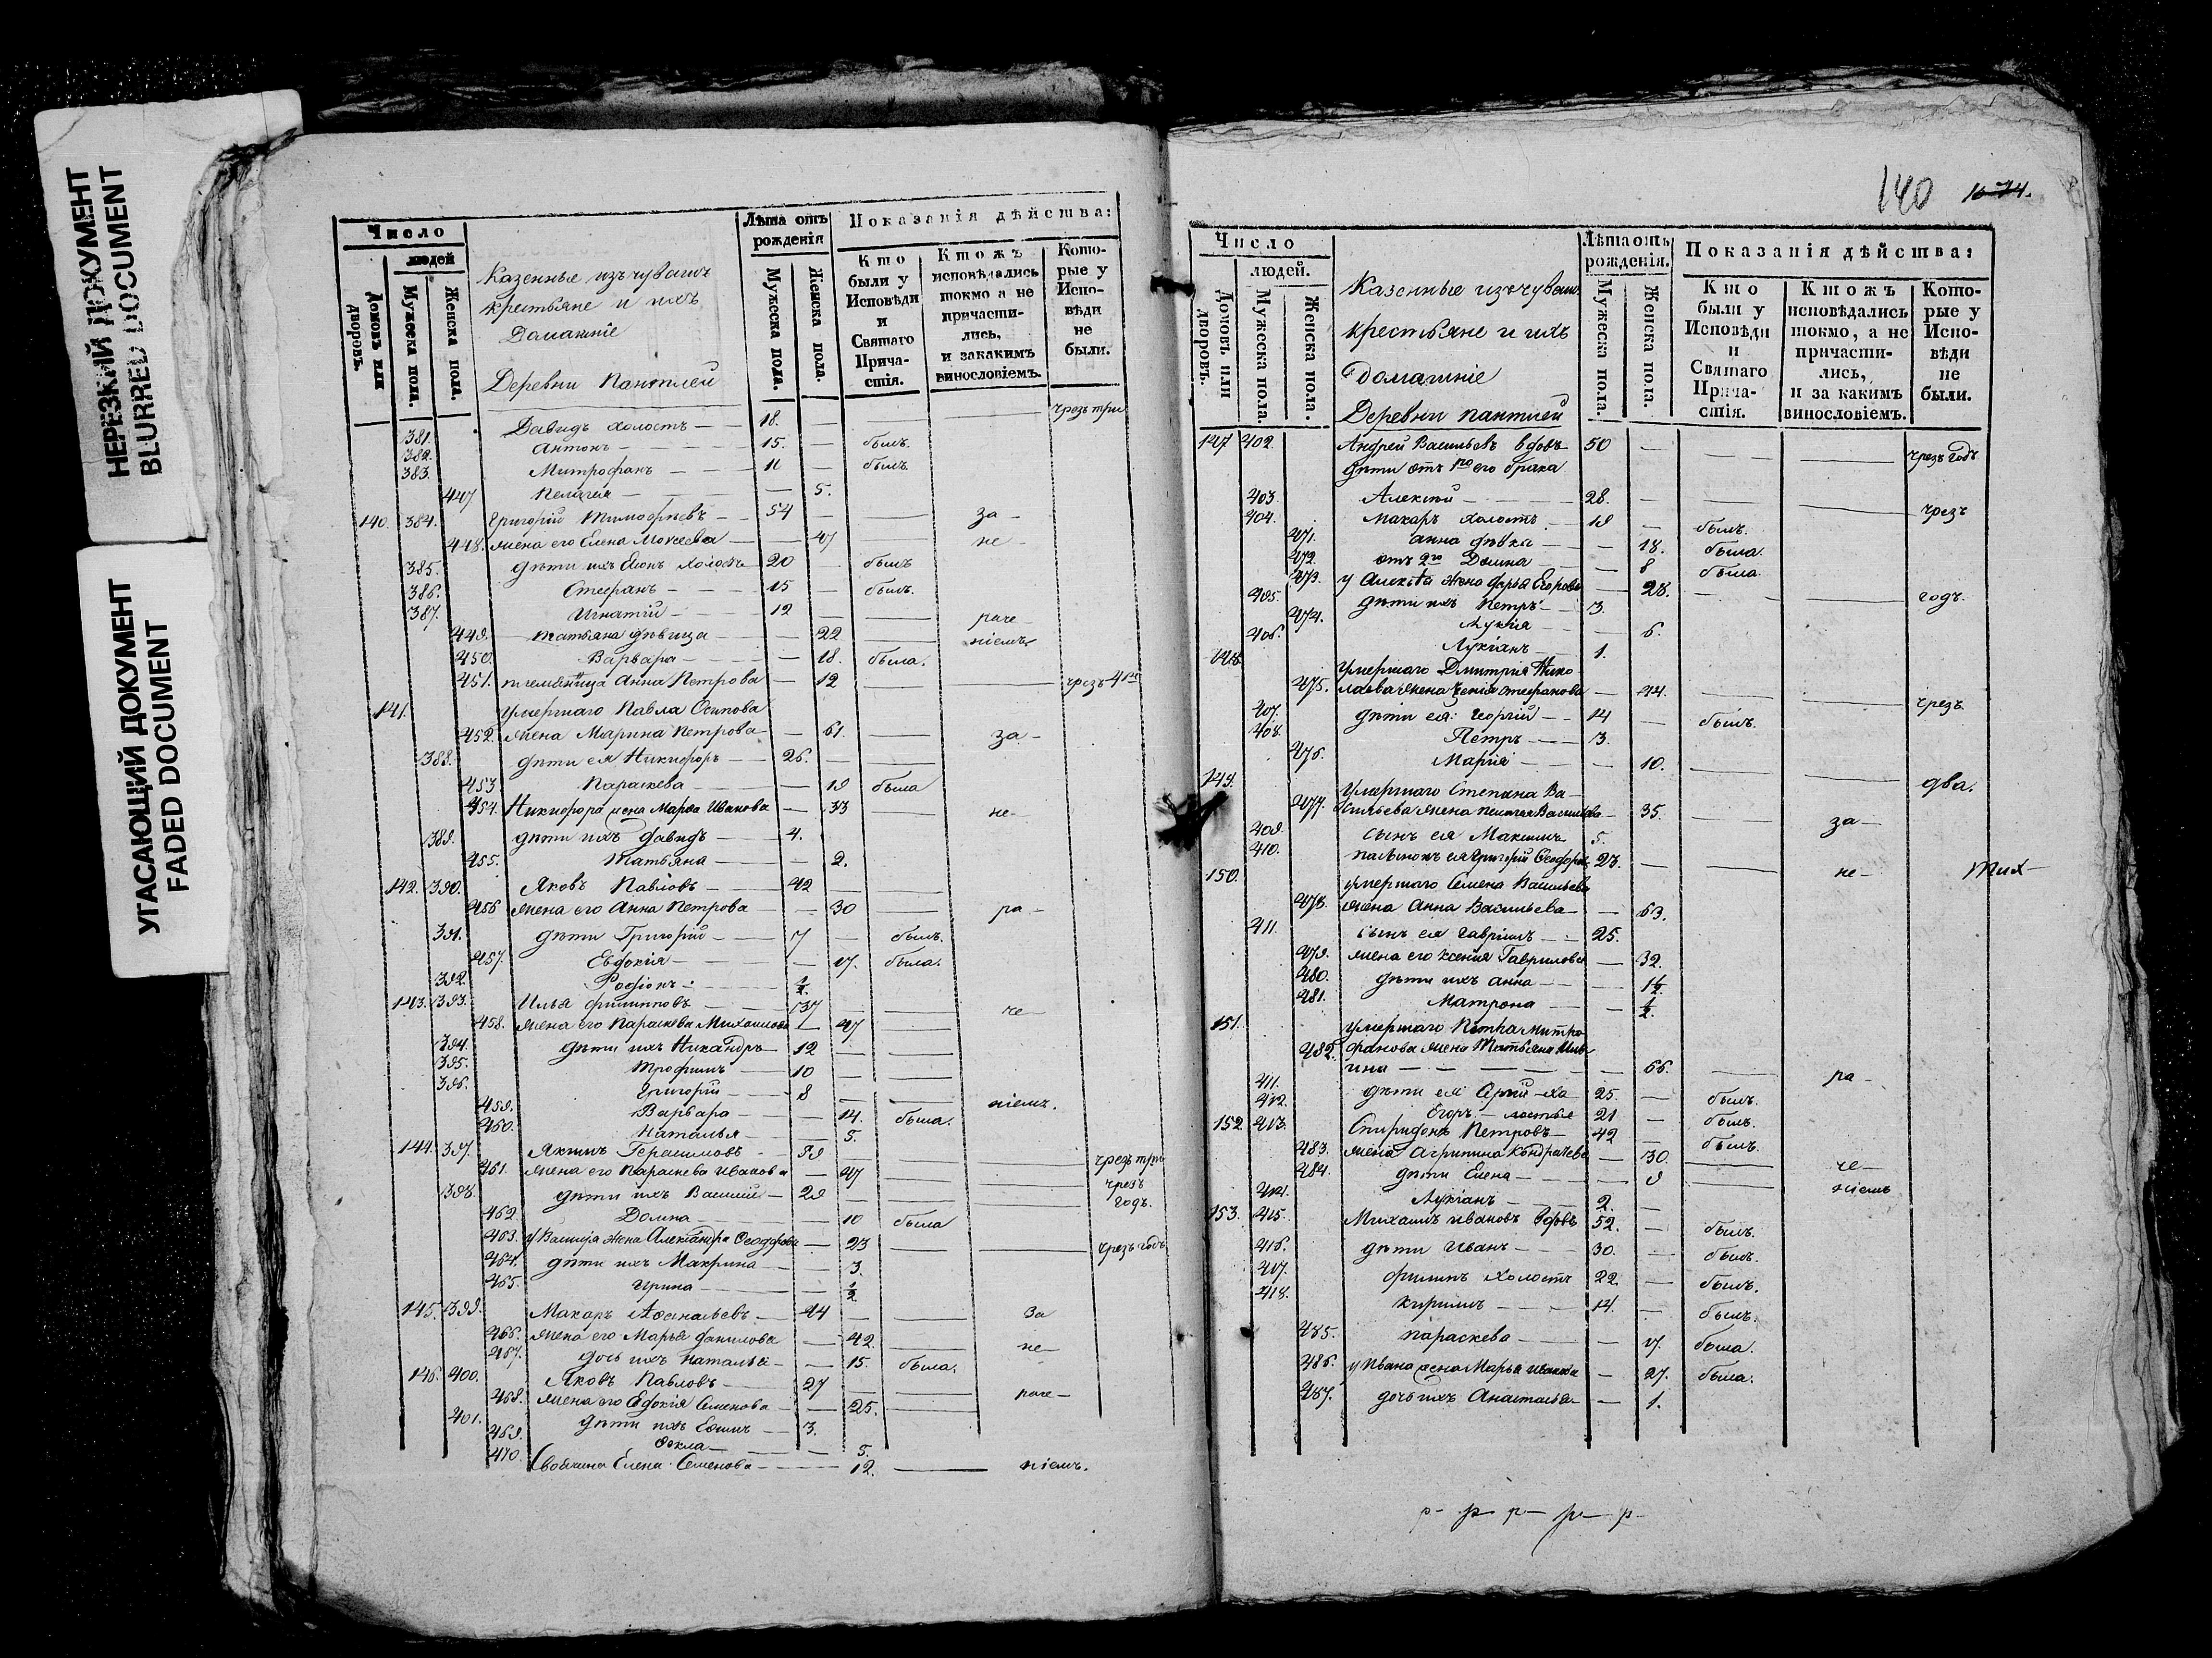 НЕРЕЗКИЙ ДОКУМЕНТ
BLURRED DOCUMENT
УГАСАЮЩИЙ ДОКУМЕНТ
FADED DOCUMENT
Число
людей
Домовъ или дворовъ.
Мужеска пола.
Женска пола.
Казенные изъ чувашъ
крестьяне и ихъ
Домашніе
Деревни Пантлей
Лѣта отъ рожденія
Мужеска пола.
Женска пола.
Показанія дѣйства:
Кто были у Исповѣди и Святаго Прича-стія.
Ктожъ исповѣдались токмо а не причасти-лись, и закакимъ винословіемъ.
Кото-рые у Испо-вѣди не были.
381. Давидъ холостъ — 18. — — — чрезъ три
382. Антонъ — 15. — былъ.
383. Митрофанъ — 11 — былъ
447 Пелагея — — 5.
140. 384. Григорій Тимофѣевъ — 54 — — за-
448. жена его Елена Моисеева — — 47 — не-
385. дѣти ихъ Симонъ холостъ 20 — былъ
386. Стефанъ — 15 — былъ.
387. Игнатій — 12 — — раче-
449. Татьяна дѣвица — — 22 — ніемъ
450. Варвара — — 18. была.
451. племянница Анна Петрова — 12 — — чрезъ 4ре
141. умершаго Павла Осипова
452. жена Марина Петрова — 61. — за-
388. дѣти ея Никифоръ — 26. — —
453 Параскева — — 19 была
454. Никифора жена Марфа Иванова — 33 — не-
389. дѣти ихъ Давидъ — 4.
455. Татьяна — — 2.
142. 390. Яковъ Павловъ — 42 — —
456 жена его Анна Петрова — — 30 — ра-
391. дѣти Григорій — 7 — былъ.
457. Евдокія — — 17. была.
392. Родіонъ — ½
143. 393. Илья Филипповъ — 37 — — че-
458. жена его Параскева Михайлова — 47 —
394. дѣти ихъ Никандръ — 12 — —
395. Трофимъ — 10 — —
396. Григорій — 8 — — ніемъ.
459. Варвара — — 14. была.
460. Наталья — — 5.
144. 397. Герасимовъ — 59 — — — чрезъ три
461. жена его Параскева Иванова — 47 — — чрезъ
398. дѣти ихъ Василій — 29 — — годъ.
462. Домна — — 10 была
463. у Василія жена Александра Феодорова — 23 — — чрезъ годъ
464. дѣти ихъ Макрина — — 3.
465. Ирина — — ½
145. 399. Макаръ Афанасьевъ — 44 — — За
466. жена его Марья Данилова — 42. — не-
467. дочь ихъ Наталья — — 15. была.
146. 400. Яковъ Павловъ — 27 — — раче-
468. жена его Евдокія Семенова — — 25. —
401. дѣти ихъ Ефимъ — 3.
469. Фекла — — 5.
470. Елена Семенова — 12. — ніемъ.
140 1074.
Число
людей.
Домовъ или дворовъ.
Мужеска пола.
Женска пола.
Казенные изъ чуваш.
крестьяне и ихъ
домашніе
Деревни Пантлей
Лѣта отъ рожденія.
Мужеска пола.
Женска пола.
Показанія дѣйства:
Кто были у Исповѣди и Святаго Прича-стія.
Ктожъ исповѣдались токмо, а не причасти-лись, и за какимъ винословіемъ.
Кото-рые у Испо-вѣди не были.
147 402. Андрей Васильевъ вдовъ 50 — — — чрезъ годъ
дѣти отъ 1го его брака
403. Алексѣй — 28. — — — чрезъ
404. Макаръ холостъ — 19 — былъ.
471. Анна дѣвка — — 18. была.
472. отъ 2го Домна — — 8 была.
473. у Алексѣя жена Дарья Егорова — 28. — — годъ.
405. дѣти ихъ Петръ — 3.
474. Лукія — — 6.
406. Лукіанъ — 1.
148 умершаго Дмитрія Нико
475. лаева жена Ксенія Стефанова — 44. — — чрезъ
407. дѣти ея: Георгій — 14 — былъ.
408. Петръ — 3.
476. Марія — — 10. — — два.
149. умершаго Степана Ва-
477. сильева жена Пелагея Васильева — 35. — за-
409. сынъ ея Максимъ 5.
410. пасынокъ ея Григорій Феодоровъ 23. — — не- Тих-
150. умершаго Семена Васильева
478. жена Анна Васильева — — 63.
411. сынъ ея Гавріилъ — 25.
479. жена его Ксенія Гаврилова — 32.
480. дѣти ихъ Анна — — 1½
481. Матрона — — ½
151. умершаго Петра Митро
482. фанова жена Татьяна Иль
ина — — 66. — ра-
411. дѣти ея Сергій — хо 25. — былъ.
412. Егоръ — лостые 21 — былъ.
152 413. Спиридонъ Петровъ — 42 — былъ.
483. жена Агрипина Кондратьева — 30. — че-
484. дѣти Елена — — 9 — ніемъ
414. Лукіанъ — 2. —
153. 415. Михаилъ Ивановъ вдовъ 52. — былъ.
416. дѣти Иванъ — 30. — былъ.
417. Филипъ холостъ 22. — былъ.
418. Кирилъ — 14. — былъ.
485. Параскева — — 17. была.
486. у Ивана жена Марья Иванова — 27. была.
487. дочь ихъ Анастасья — — 1.
р- р- р- р- р-